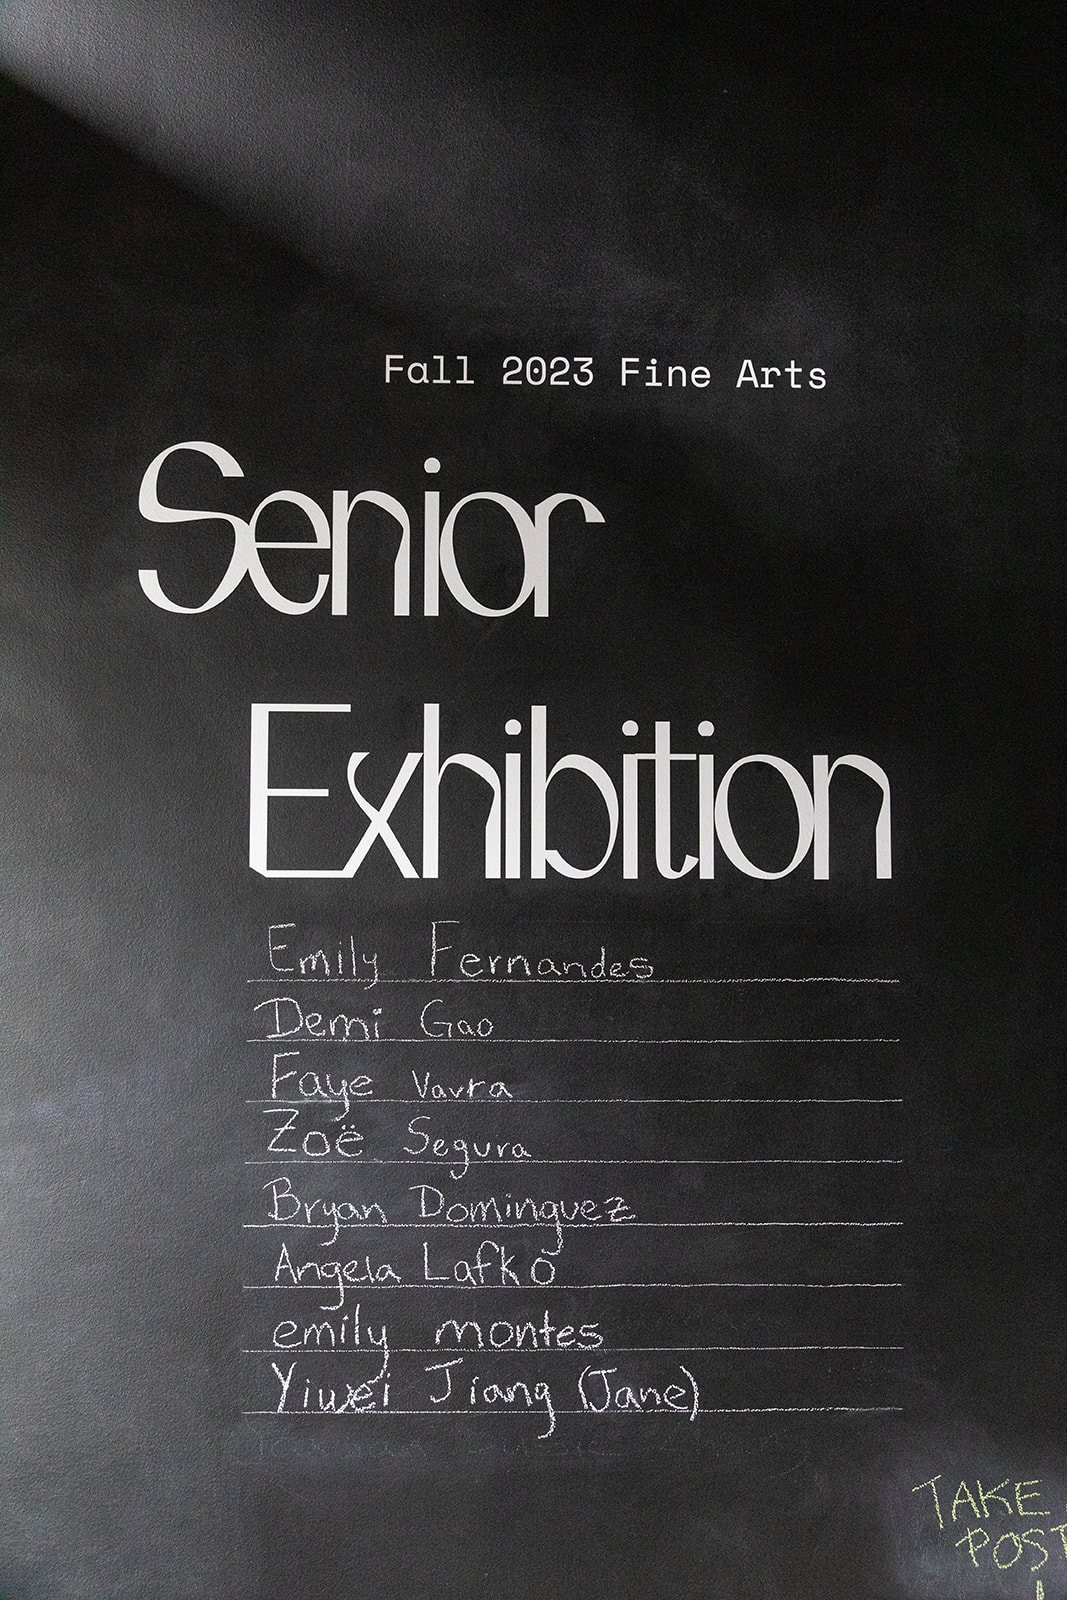 Fall 2023 Fine Arts
Senior
Exhibition
Emily Fernandes
Demi Gao
Faye Vavra
Zoë Segura
Bryan Dominguez
Angela Lafko
emily montes
Yiwei Jiang (Jane)
TAKE
POST